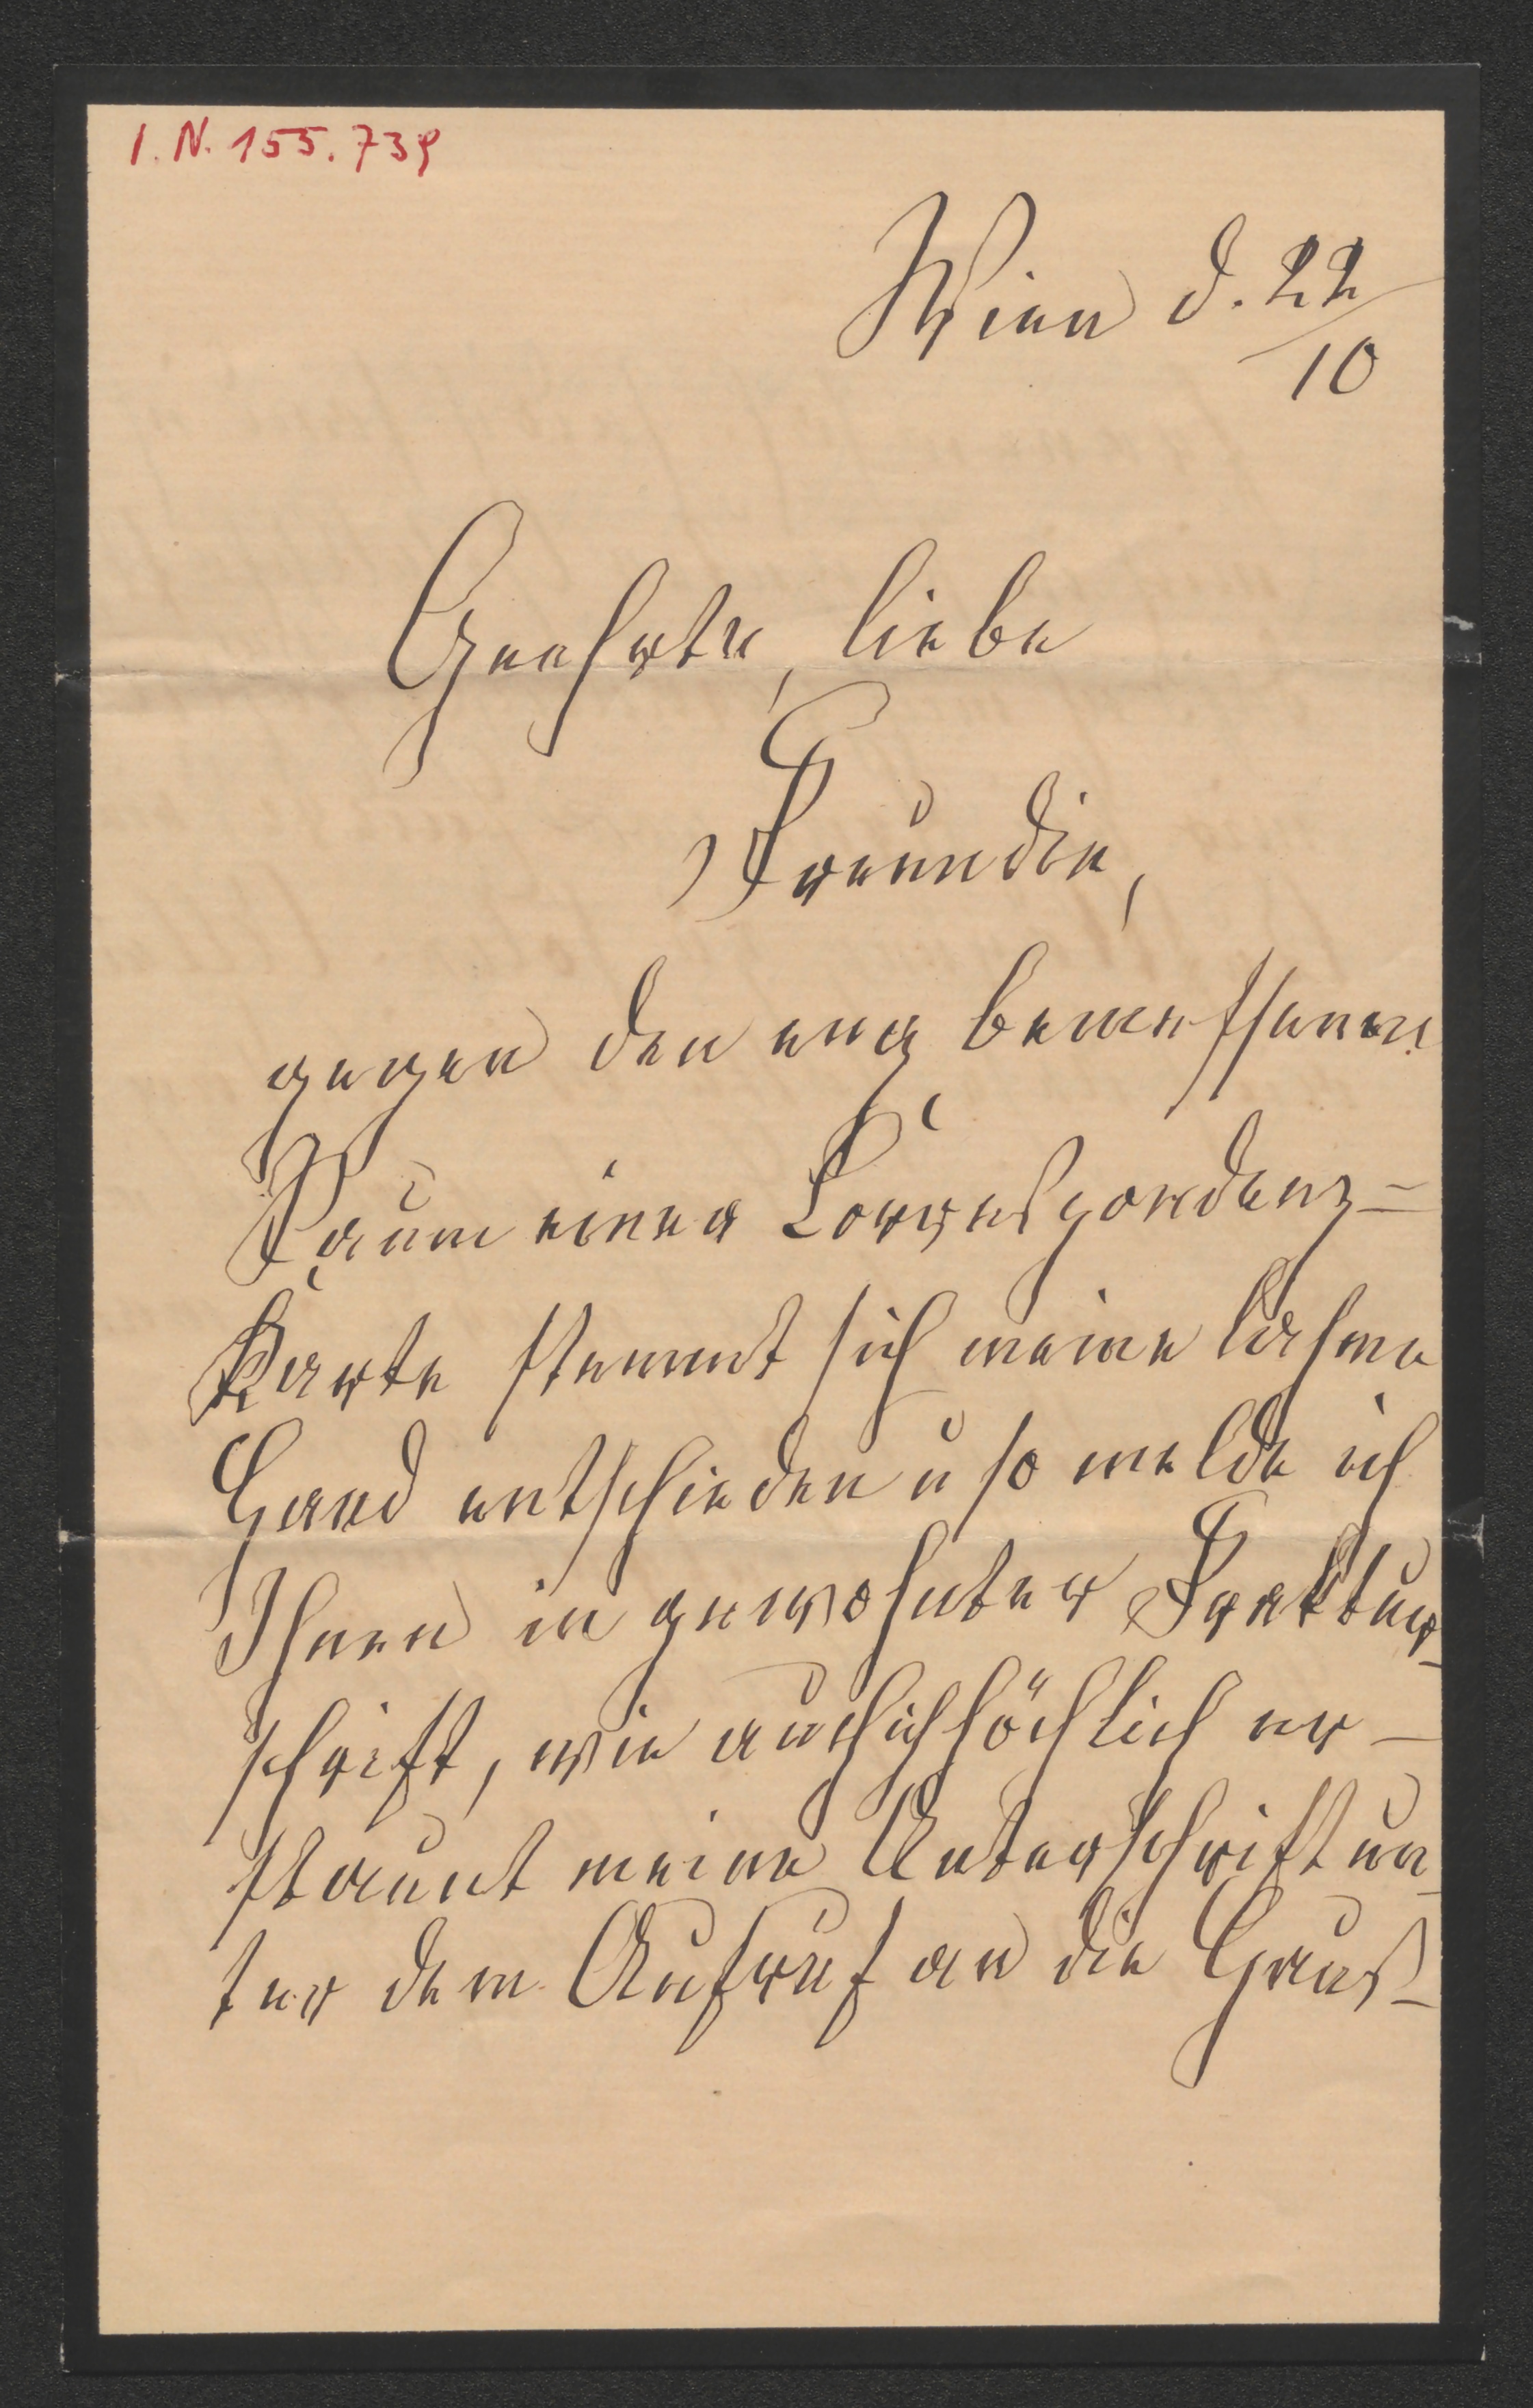 I. N. 155.739
Wien d. 22/10
Geehrte, liebe
Freundin,
gegen den eng bemessenen
Raum einer Correspondenz=
Karte stemmt sich meine lahme
Hand entschieden u so melde ich
Ihnen in gewohnter Fraktur-
schrift, wie auch ich höchlich er-
staunt meine Unterschrift un-
ter dem Aufruf an die